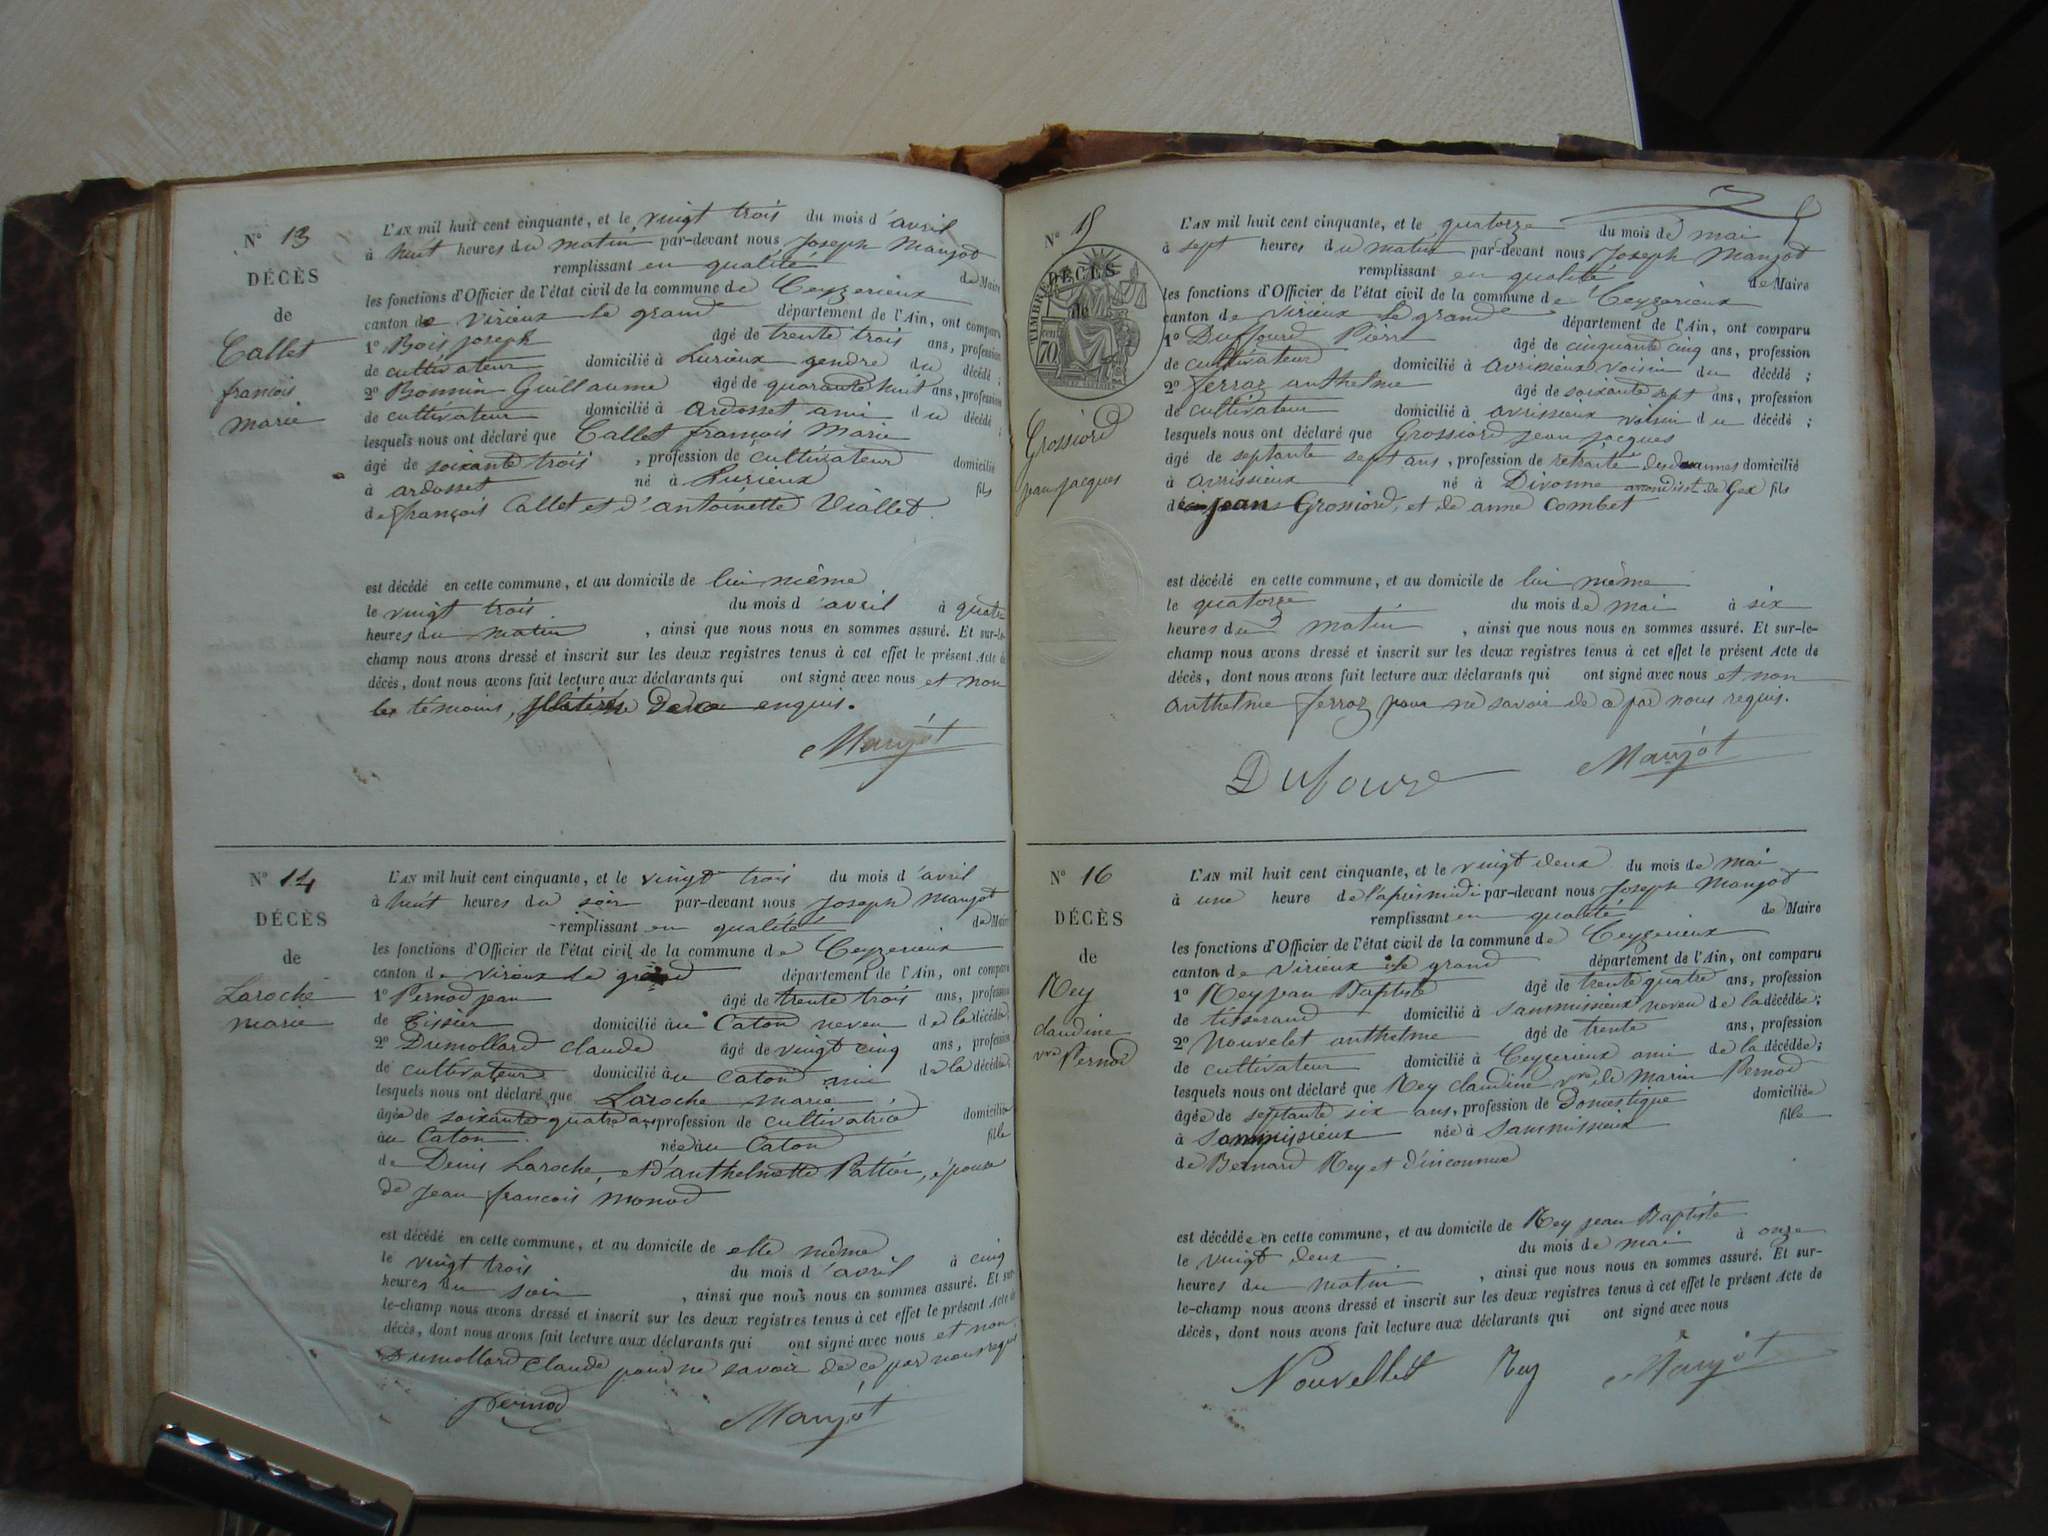 N° 13
DÉCÈS
de
Callet
francois
marie
L'AN mil huit cent cinquante, et le vingt trois du mois d'avril
à huit heures du matin par-devant nous Joseph Manjot
remplissant en qualité de Maire
les fonctions d'Officier de l'état civil de la commune de Ceyzerieux
canton de virieux le grand département de l'Ain, ont comparu
1° Bois joseph âgé de trente trois ans, profession
de cultivateur domicilié à Lurieux gendre du décédé ;
2° Bonnin Guillaume âgé de quarante huit ans, profession
de cultivateur domicilié à ardosset ami du décédé ;
lesquels nous ont déclaré que Callet francois Marie
âgé de soixante trois , profession de cultivateur domicilié
à ardosset né à Lurieux fils
de françois Callet et d'antoinette Viallet.
est décédé en cette commune, et au domicile de lui même
le vingt trois du mois d'avril à quatre
heures du matin , ainsi que nous nous en sommes assuré. Et sur-le-
champ nous avons dressé et inscrit sur les deux registres tenus à cet effet le présent Acte de
décès, dont nous avons fait lecture aux déclarants qui ont signé avec nous et non
les témoins, enquis.
Manjot
N° 14
DÉCÈS
de
Laroche
marie
L'AN mil huit cent cinquante, et le vingt trois du mois d'avril
à huit heures du soir par-devant nous Joseph Manjot
remplissant en qualité de Maire
les fonctions d'Officier de l'état civil de la commune de Ceyzerieux
canton de virieux le grand département de l'Ain, ont comparu
1° Pernod jean âgé de trente trois ans, profession
de Tissier domicilié au Caton neveu de la décédée;
2° Dumollard claude âgé de vingt cinq ans, profession
de cultivateur domicilié au Caton ami de la décédée;
lesquels nous ont déclaré que Laroche marie
âgée de soixante quatre ans profession de cultivatrice domiciliée
au Caton née au Caton fille
de Denis Laroche, et d'anthelmette Pattin, épouse
de Jean francois Monod
est décédé en cette commune, et au domicile de elle même
le vingt trois du mois d'avril à cinq
heures du soir , ainsi que nous nous en sommes assuré. Et sur-
le-champ nous avons dressé et inscrit sur les deux registres tenus à cet effet le présent Acte de
décès, dont nous avons fait lecture aux déclarants qui ont signé avec nous et non
Dumollard claude pour ne savoir de ce par nous requis
Pernod Manjot
N° 15
DÉCÈS
de
TIMBRE
70
Grossiord
jean jacques
L'AN mil huit cent cinquante, et le quatorze du mois de mai
à sept heures du matin par-devant nous Joseph Manjot
remplissant en qualité de Maire
les fonctions d'Officier de l'état civil de la commune de Ceyzerieux
canton de virieux le grand département de l'Ain, ont comparu
1° Duffourd Pierre âgé de cinquante cinq ans, profession
de cultivateur domicilié à avrisieux voisin du décédé ;
2° ferraz anthelme âgé de soixante sept ans, profession
de cultivateur domicilié à avrissieux voisin du décédé ;
lesquels nous ont déclaré que Grossiord jean jacques
âgé de septante sept ans, profession de retraité des douannes domicilié
à avrissieux né à Divonne arrondisst. de Gex fils
de jean Grossiord, et de anne Combet
est décédé en cette commune, et au domicile de lui même
le quatorze du mois de mai à six
heures du matin , ainsi que nous nous en sommes assuré. Et sur-le-
champ nous avons dressé et inscrit sur les deux registres tenus à cet effet le présent Acte de
décès, dont nous avons fait lecture aux déclarants qui ont signé avec nous et non
anthelme ferraz pour ne savoir de ce par nous requis.
Dufourd Manjot
N° 16
DÉCÈS
de
Rey
claudine
vve Pernod
L'AN mil huit cent cinquante, et le vingt deux du mois de mai
à une heure de l'après midi par-devant nous Joseph Manjot
remplissant en qualité de Maire
les fonctions d'Officier de l'état civil de la commune de Ceyzerieux
canton de virieux le grand département de l'Ain, ont comparu
1° Rey jean Baptiste âgé de trente quatre ans, profession
de tisserand domicilié à Sammissieux neveu de la décédée;
2° Nouvelet anthelme âgé de trente ans, profession
de cultivateur domicilié à Ceyzerieux ami de la décédée;
lesquels nous ont déclaré que Rey claudine vve de Marin Pernod
âgée de septante six ans, profession de Domestique domiciliée
à Sammissieux née à Sammissieux fille
de Bernard Rey et d'inconnue
est décédée en cette commune, et au domicile de Rey jean Baptiste
le vingt deux du mois de mai à onze
heures du matin , ainsi que nous nous en sommes assuré. Et sur-
le-champ nous avons dressé et inscrit sur les deux registres tenus à cet effet le présent Acte de
décès, dont nous avons fait lecture aux déclarants qui ont signé avec nous
Nouvellet Rey Manjot